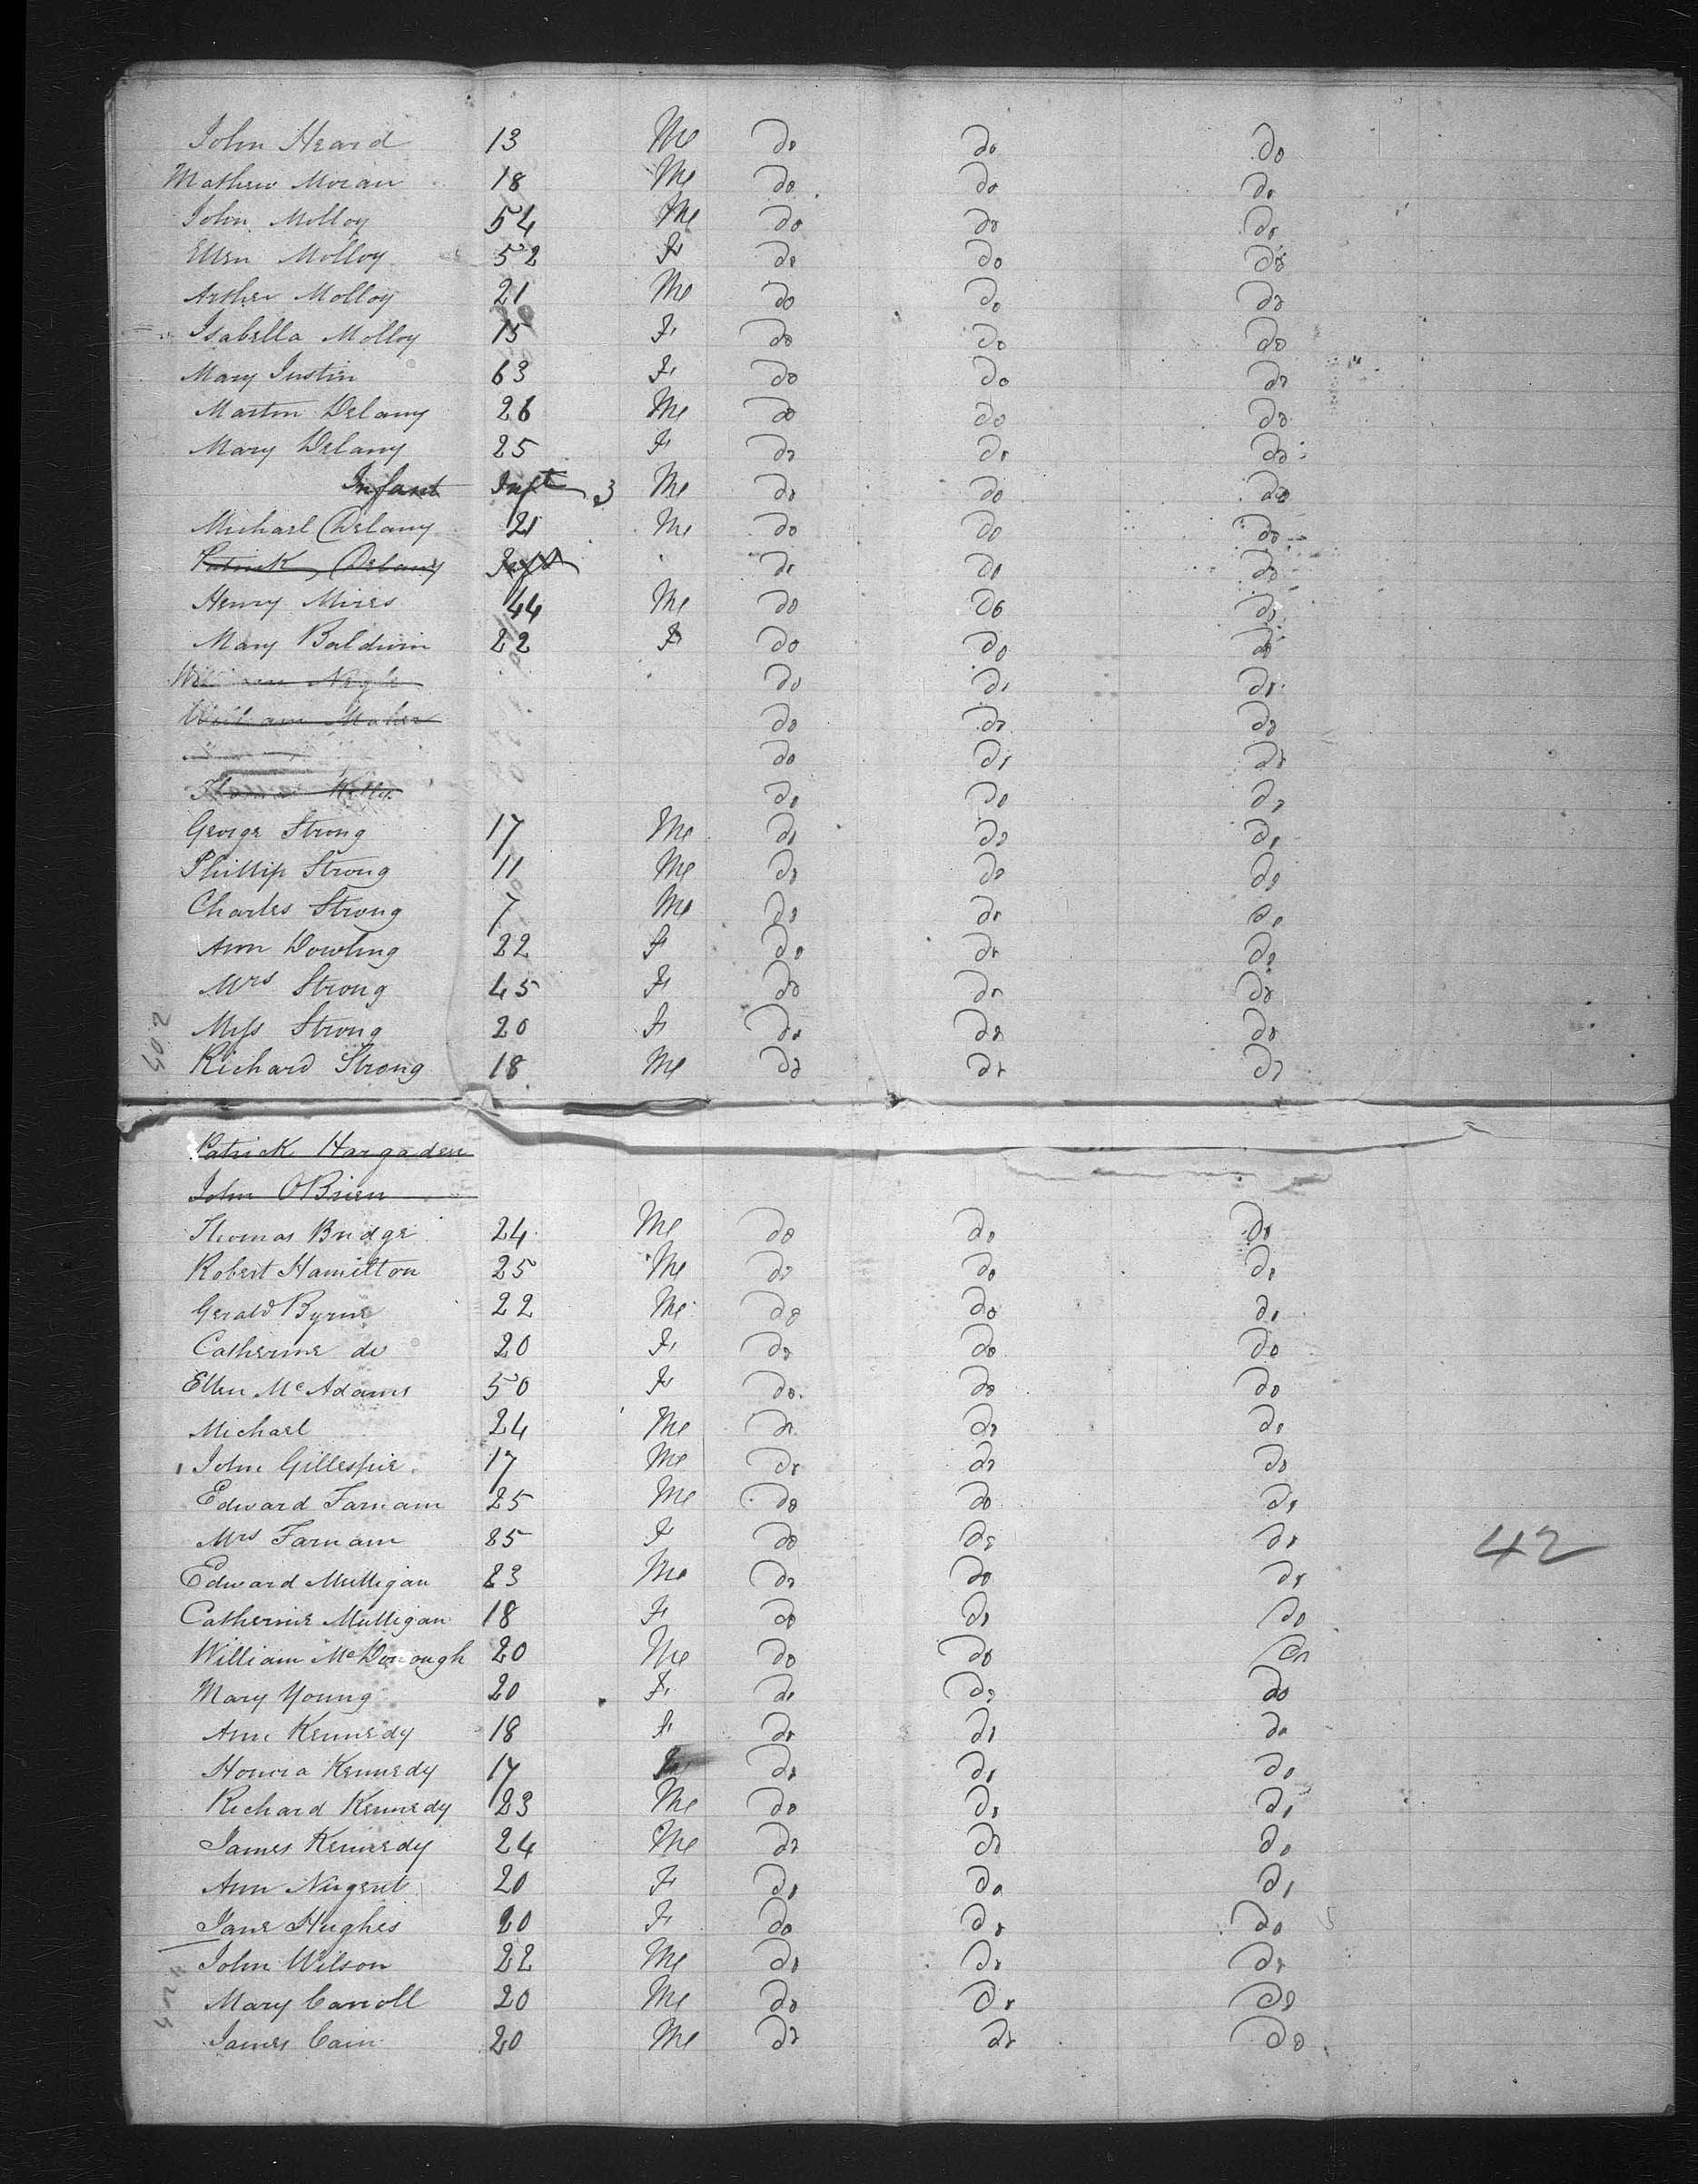 John Heard 13 Me do do do
Mathew Moran 18 Me do do do
John Molloy 54 Me do do do
Ellen Molloy 52 F do do do
Arther Molloy 21 Me do do do
Isabella Molloy 15 F do do do
Mary Justin 63 F do do do
Martin Delany 26 Me do do do
Mary Delany 25 F do do do
Infant Inft 3 Me do do do
Michael Delany 21 Me do do do
Patrick Delany Inft do do do
Henry Mires 44 Me do do do
Mary Baldwin 22 F do do do
William Nagle do do do
William Maher do do do
do do do
Thomas Kelly do do do
George Strong 17 Me do do do
Phillip Strong 11 Me do do do
Charles Strong 7 Me do do do
Ann Dowling 22 F do do do
Mrs Strong 45 F do do do
Miss Strong 20 F do do do
Richard Strong 18 Me do do do
Patrick Hargaden
John OBrien
Thomas Bridge 24 Me do do do
Robert Hamilton 25 Me do do do
Gerald Byrne 22 Me do do do
Catherine do 20 F do do do
Ellen McAdams 50 F do do do
Michael 24 Me do do do
John Gillespie 17 Me do do do
Edward Farnam 25 Me do do do
Mrs Farnam 85 F do do do 42
Edward Mulligan 23 Me do do do
Catherine Mulligan 18 F do do do
William McDonough 20 Me do do do
Mary Young 20 F do do do
Ann Kennedy 18 F do do do
Honora Kennedy 17 F do do do
Richard Kennedy 23 Me do do do
James Kennedy 24 Me do do do
Ann Nugent 20 F do do do
Jane Hughes 20 F do do do
John Wilson 22 Me do do do
Mary Carroll 20 Me do do do
James Cain 20 Me do do do